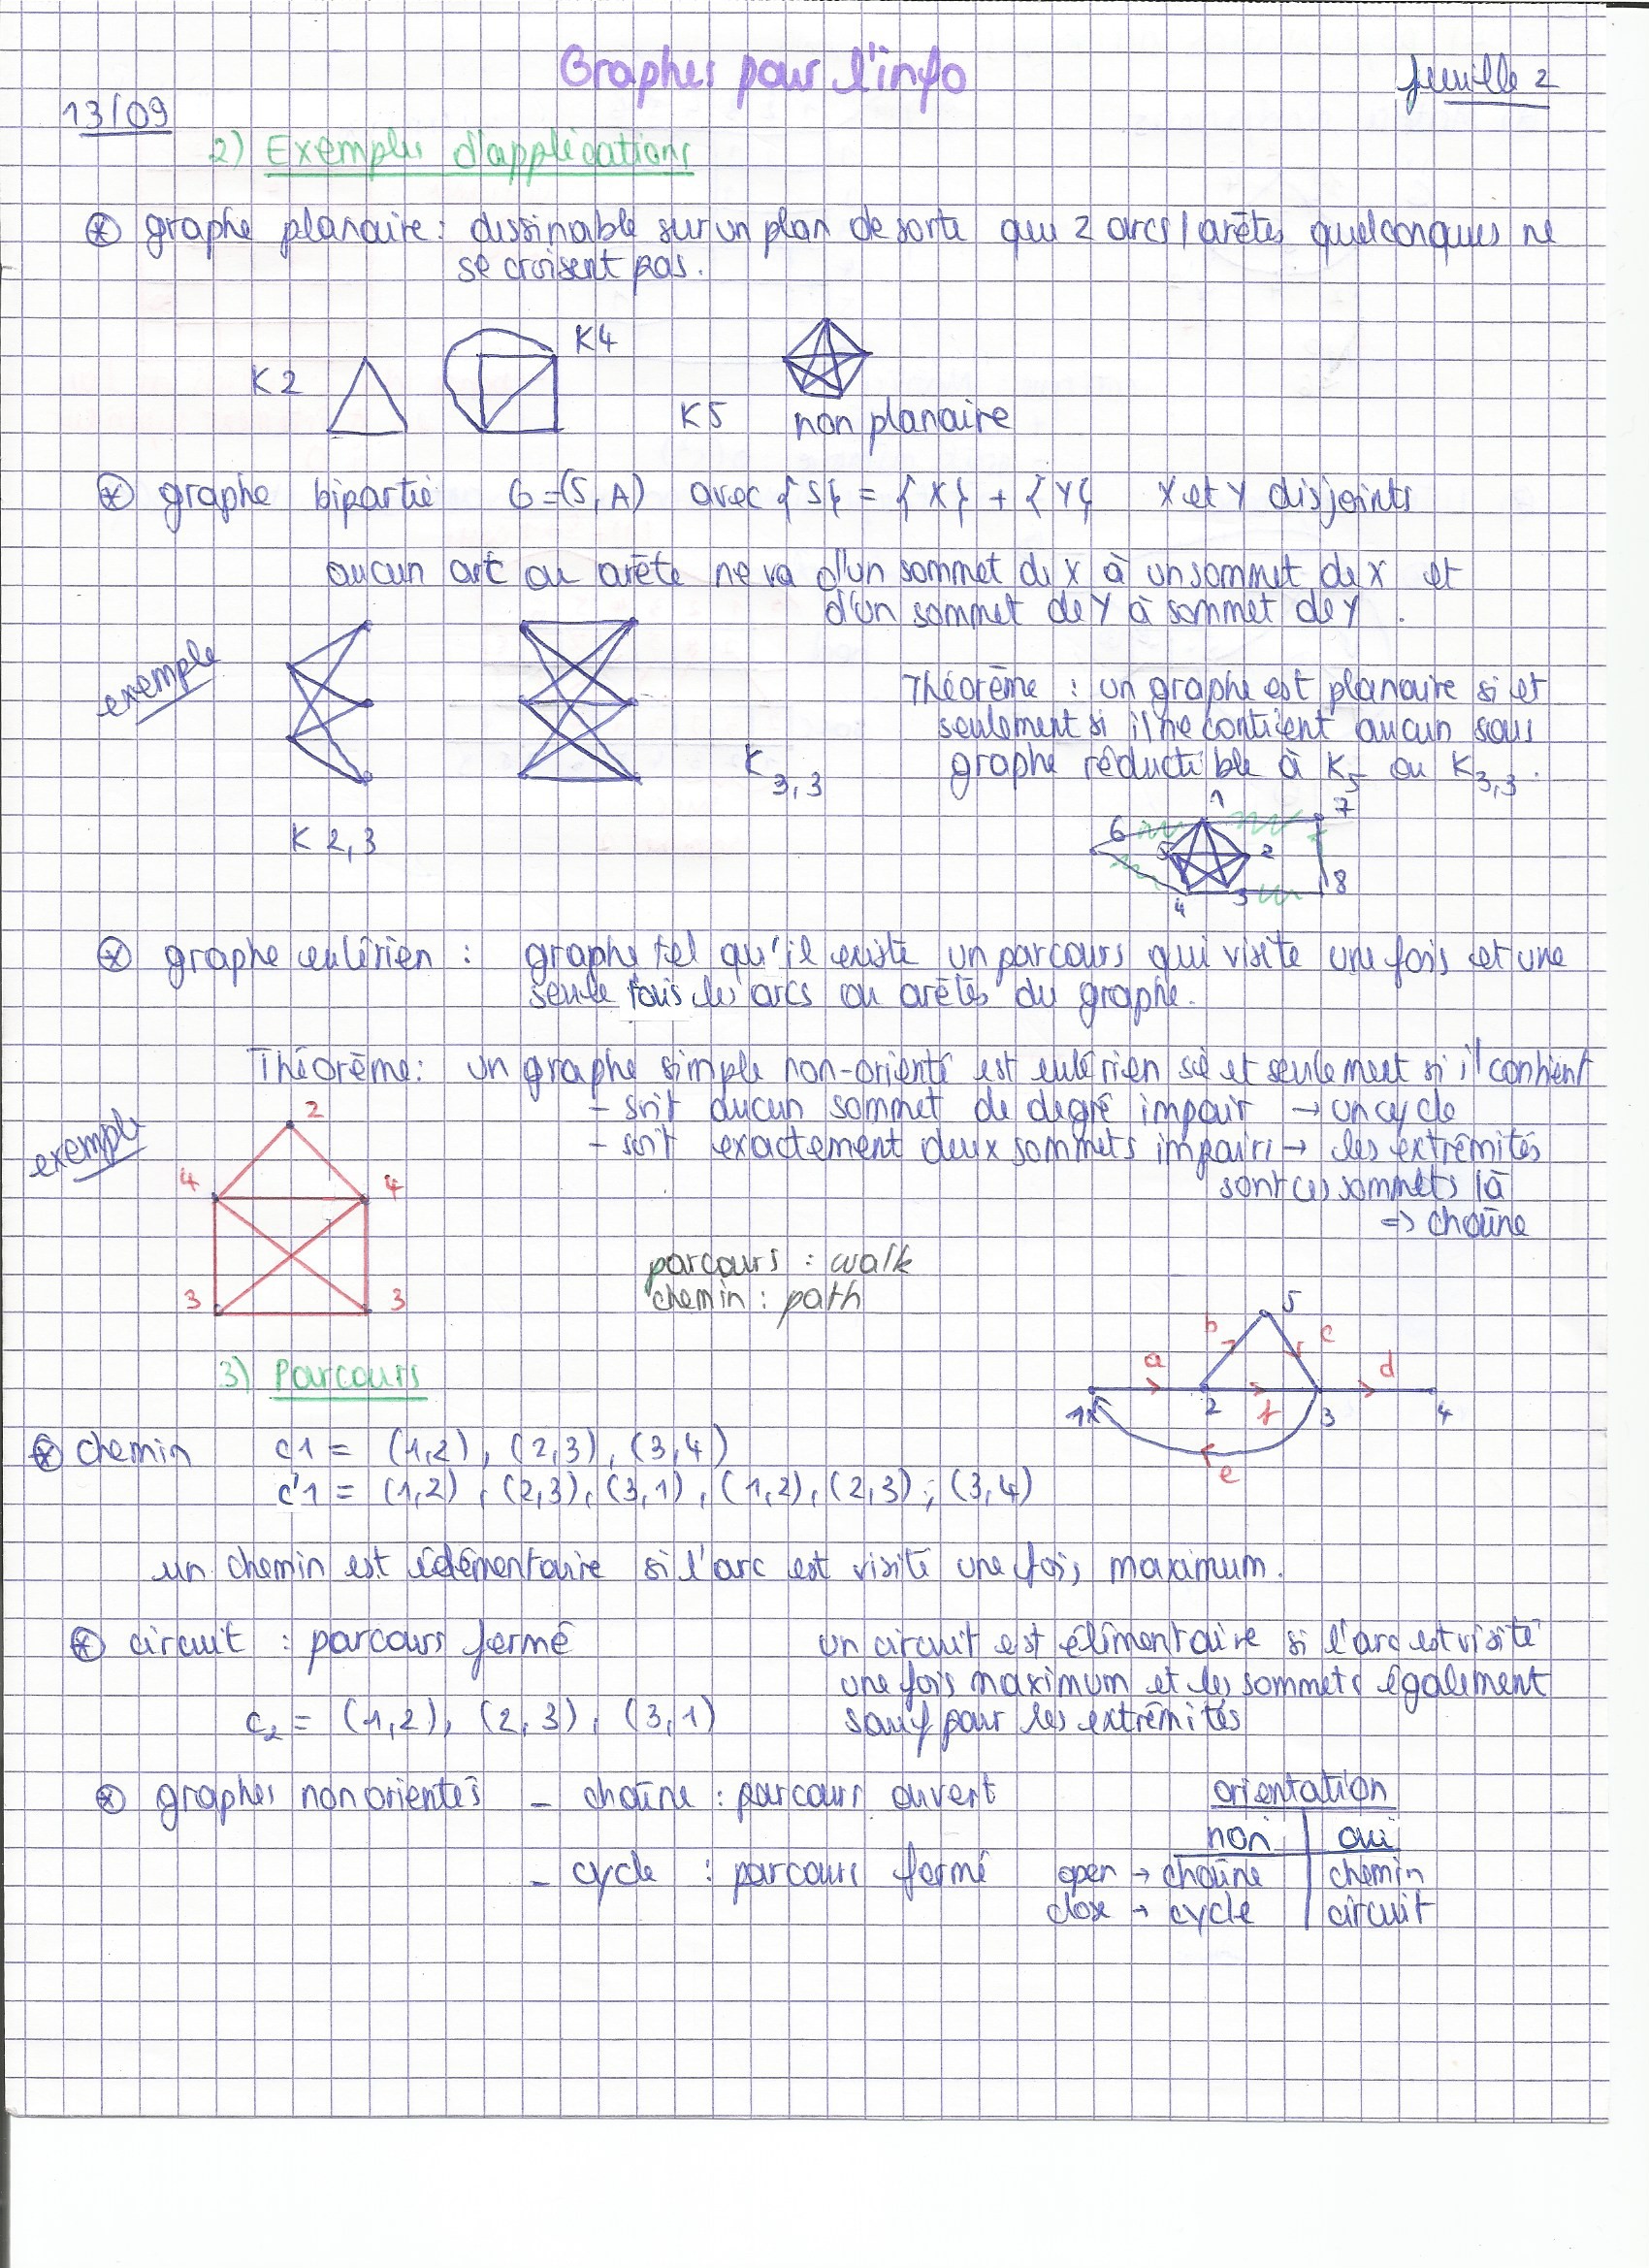 Graphes pour l'info
feuille 2
13/09
2) Exemples d'applications
⊛ graphe planaire : dessinable sur un plan de sorte que 2 arcs/arêtes quelconques ne
se croisent pas.
K2
K4
K5
non planaire
⊛ graphe bipartie G=(S,A) avec {S} = {X} + {Y} X et Y disjoints
aucun arc ou arête ne va d'un sommet de X à un sommet de X et
d'un sommet de Y à sommet de Y.
exemple
K 2,3
K3,3
Théorème : un graphe est planaire si et
seulement si il ne contient aucun sous
graphe réductible à K5 ou K3,3.
1
7
6
5
2
8
4
3
⊛ graphe eulérien : graphe tel qu'il existe un parcours qui visite une fois et une
seule tous les arcs ou arêtes du graphe.
Théorème : un graphe simple non-orienté est eulérien si et seulement si il contient
- soit aucun sommet de degré impair → un cycle
- soit exactement deux sommets impairs → les extrêmités
sont ces sommets là
=> chaîne
exemple
2
4
4
3
3
parcours : walk
chemin : path
5
b
c
a
d
1
2
f
3
4
e
3) Parcours
⊛ chemin c1 = (1,2), (2,3), (3,4)
c'1 = (1,2), (2,3), (3,1), (1,2), (2,3), (3,4)
un chemin est élémentaire si l'arc est visité une fois maximum.
⊛ circuit : parcours fermé
c2 = (1,2), (2,3), (3,1)
un circuit est élémentaire si l'arc est visité
une fois maximum et les sommets également
sauf pour les extrêmités
⊛ graphes non orientés - chaîne : parcours ouvert
- cycle : parcours fermé
orientation
non oui
open → chaîne chemin
close → cycle circuit